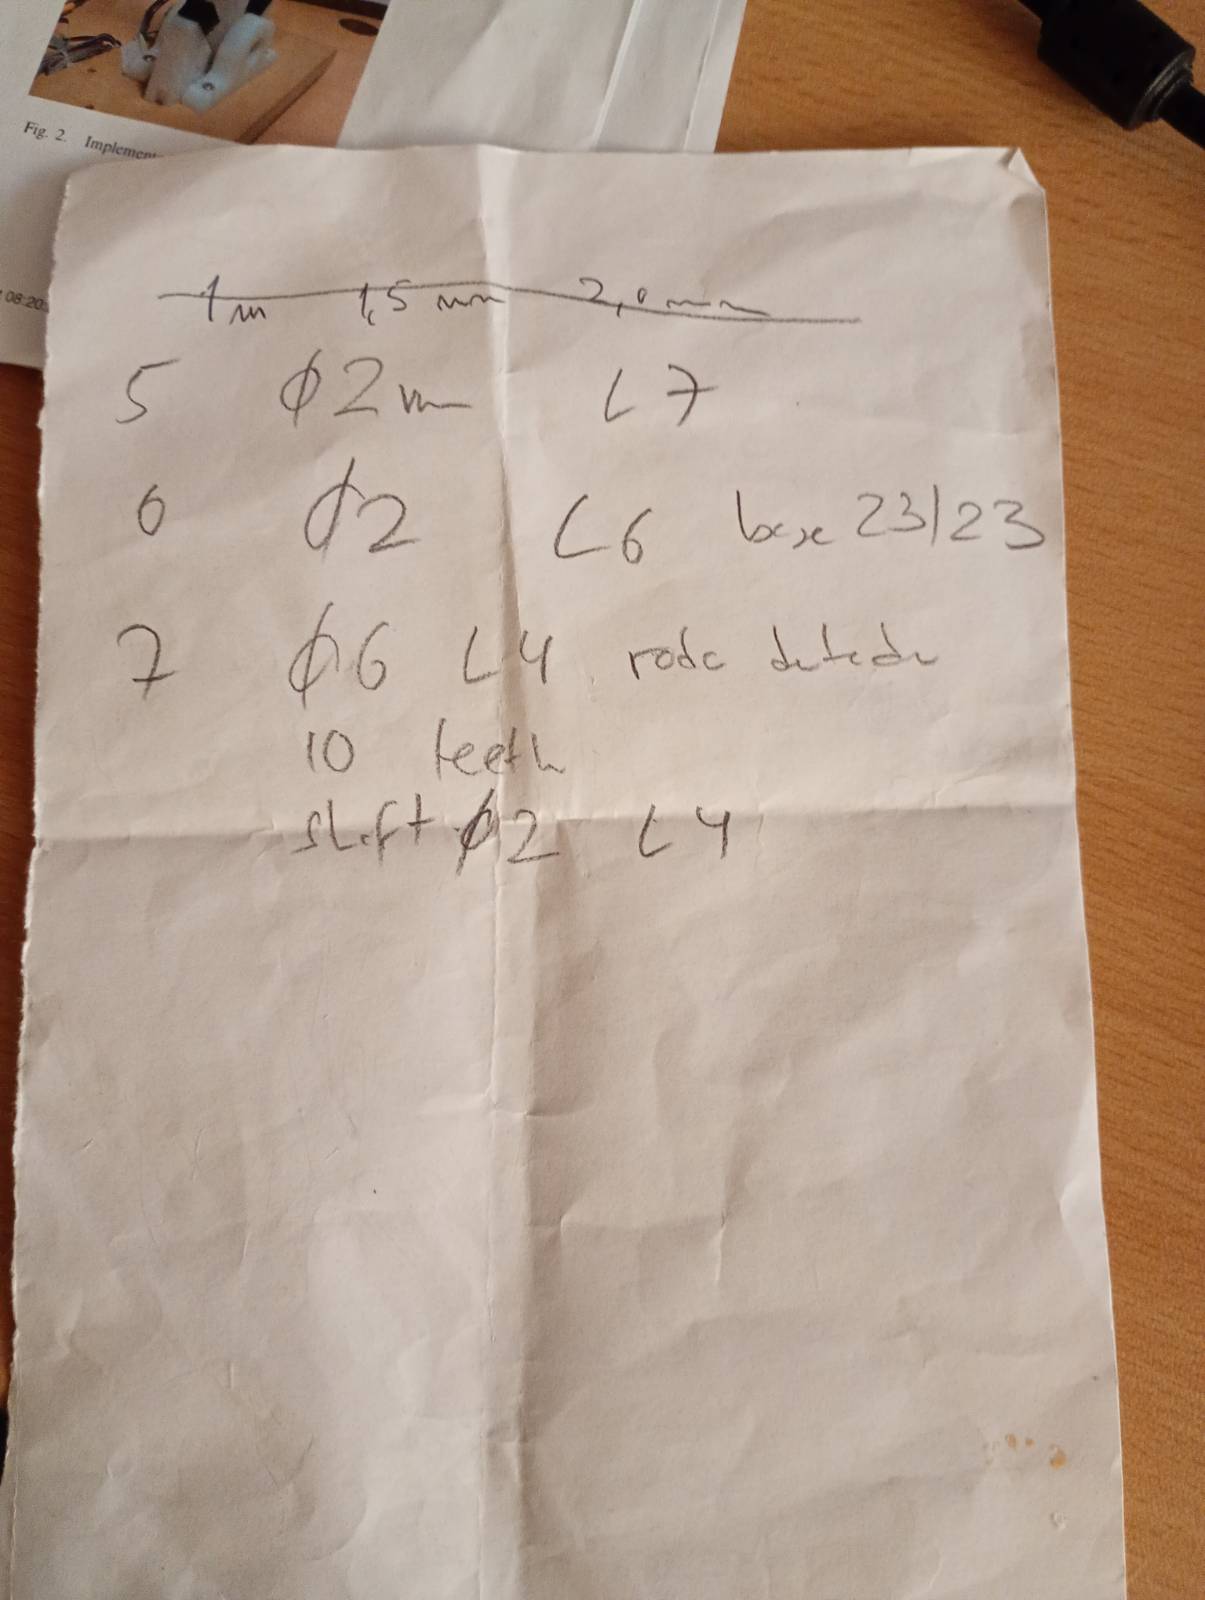 Fig. 2. Implemen
08:20
1 m 1,5 mm 2,0 mm
5 ϕ2 m L7
6 ϕ2 L6 base 23/23
7 ϕ6 L4 roda
10 teeth
shift ϕ2 L4